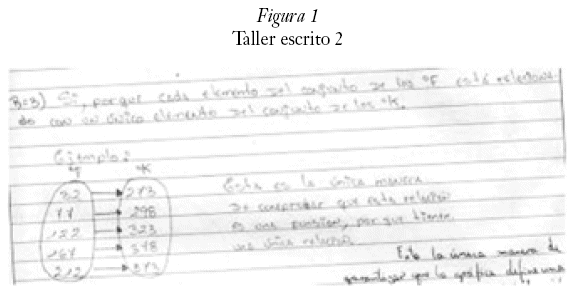 Figura 1
Taller escrito 2
B=3) Si, porque cada elemento del conjunto de los °F está relaciona-
do con un único elemento del conjunto de los °K.
Ejemplo:
°F °K
32 273
77 298
122 323
167 348
212 373
Esta es la única manera
de comprobar que esta relación
es una función, por que tiene
una única relación
Esta la única manera de
garantizar que la gráfica define una